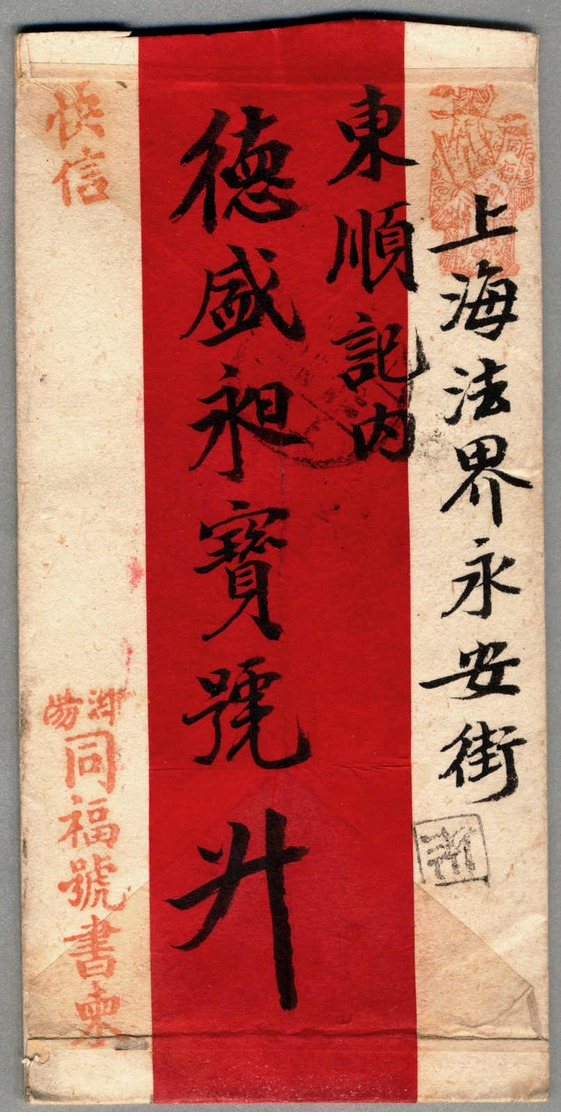 上海法界永安街
東順記内
德盛昶寶號 升
快信
同福號書柬